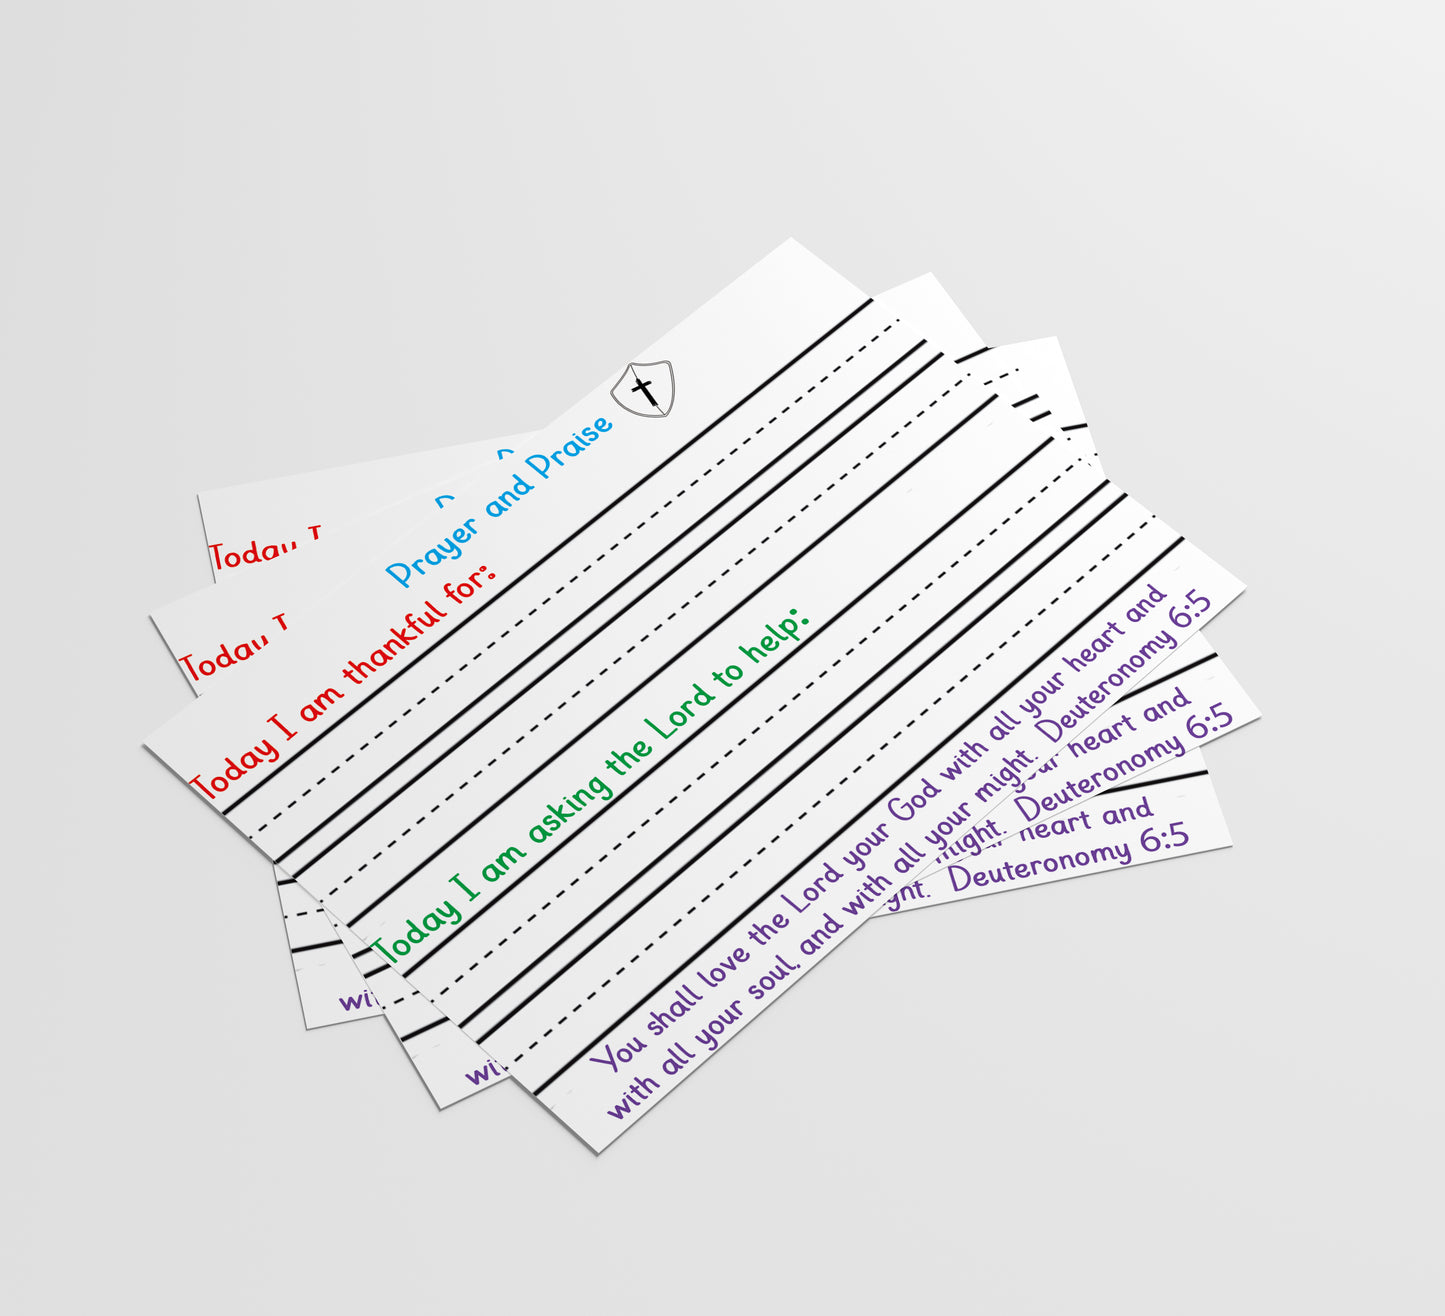 Prayer and Praise
Today I am thankful for:
Today I am asking the Lord to help:
You shall love the Lord your God with all your heart and
with all your soul, and with all your might. Deuteronomy 6:5
Today
Today
heart and
might. Deuteronomy 6:5
heart and
Deuteronomy 6:5